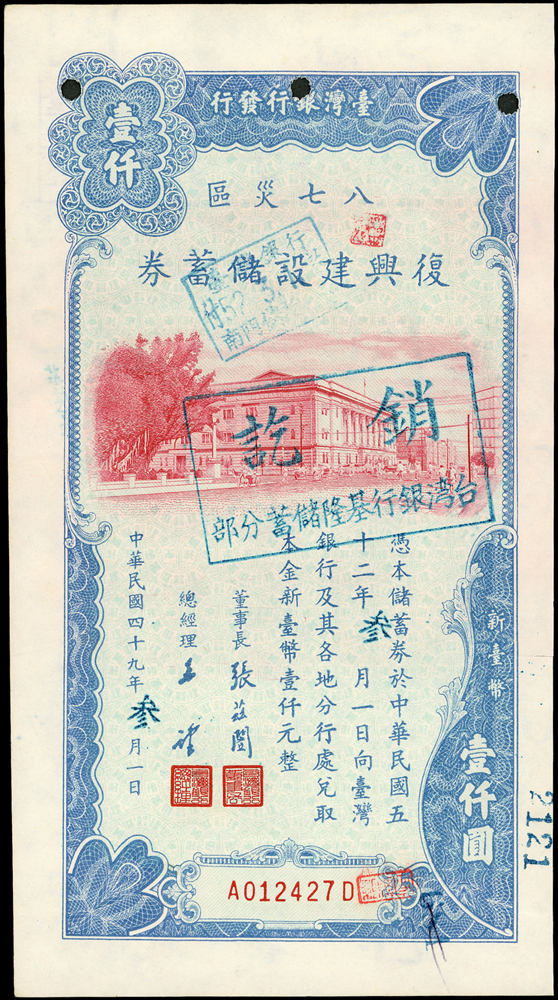 臺灣銀行發行
壹仟
八七災區
復興建設儲蓄券
銀行
52.3.
南門
銷訖
台湾銀行基隆儲蓄分部
憑本儲蓄券於中華民國五
十二年叁月一日向臺灣
銀行及其各地分行處兌取
本金新臺幣壹仟元整
董事長 張茲闓
總經理
中華民國四十九年叁月一日
新臺幣
壹仟圓
2121
A012427D